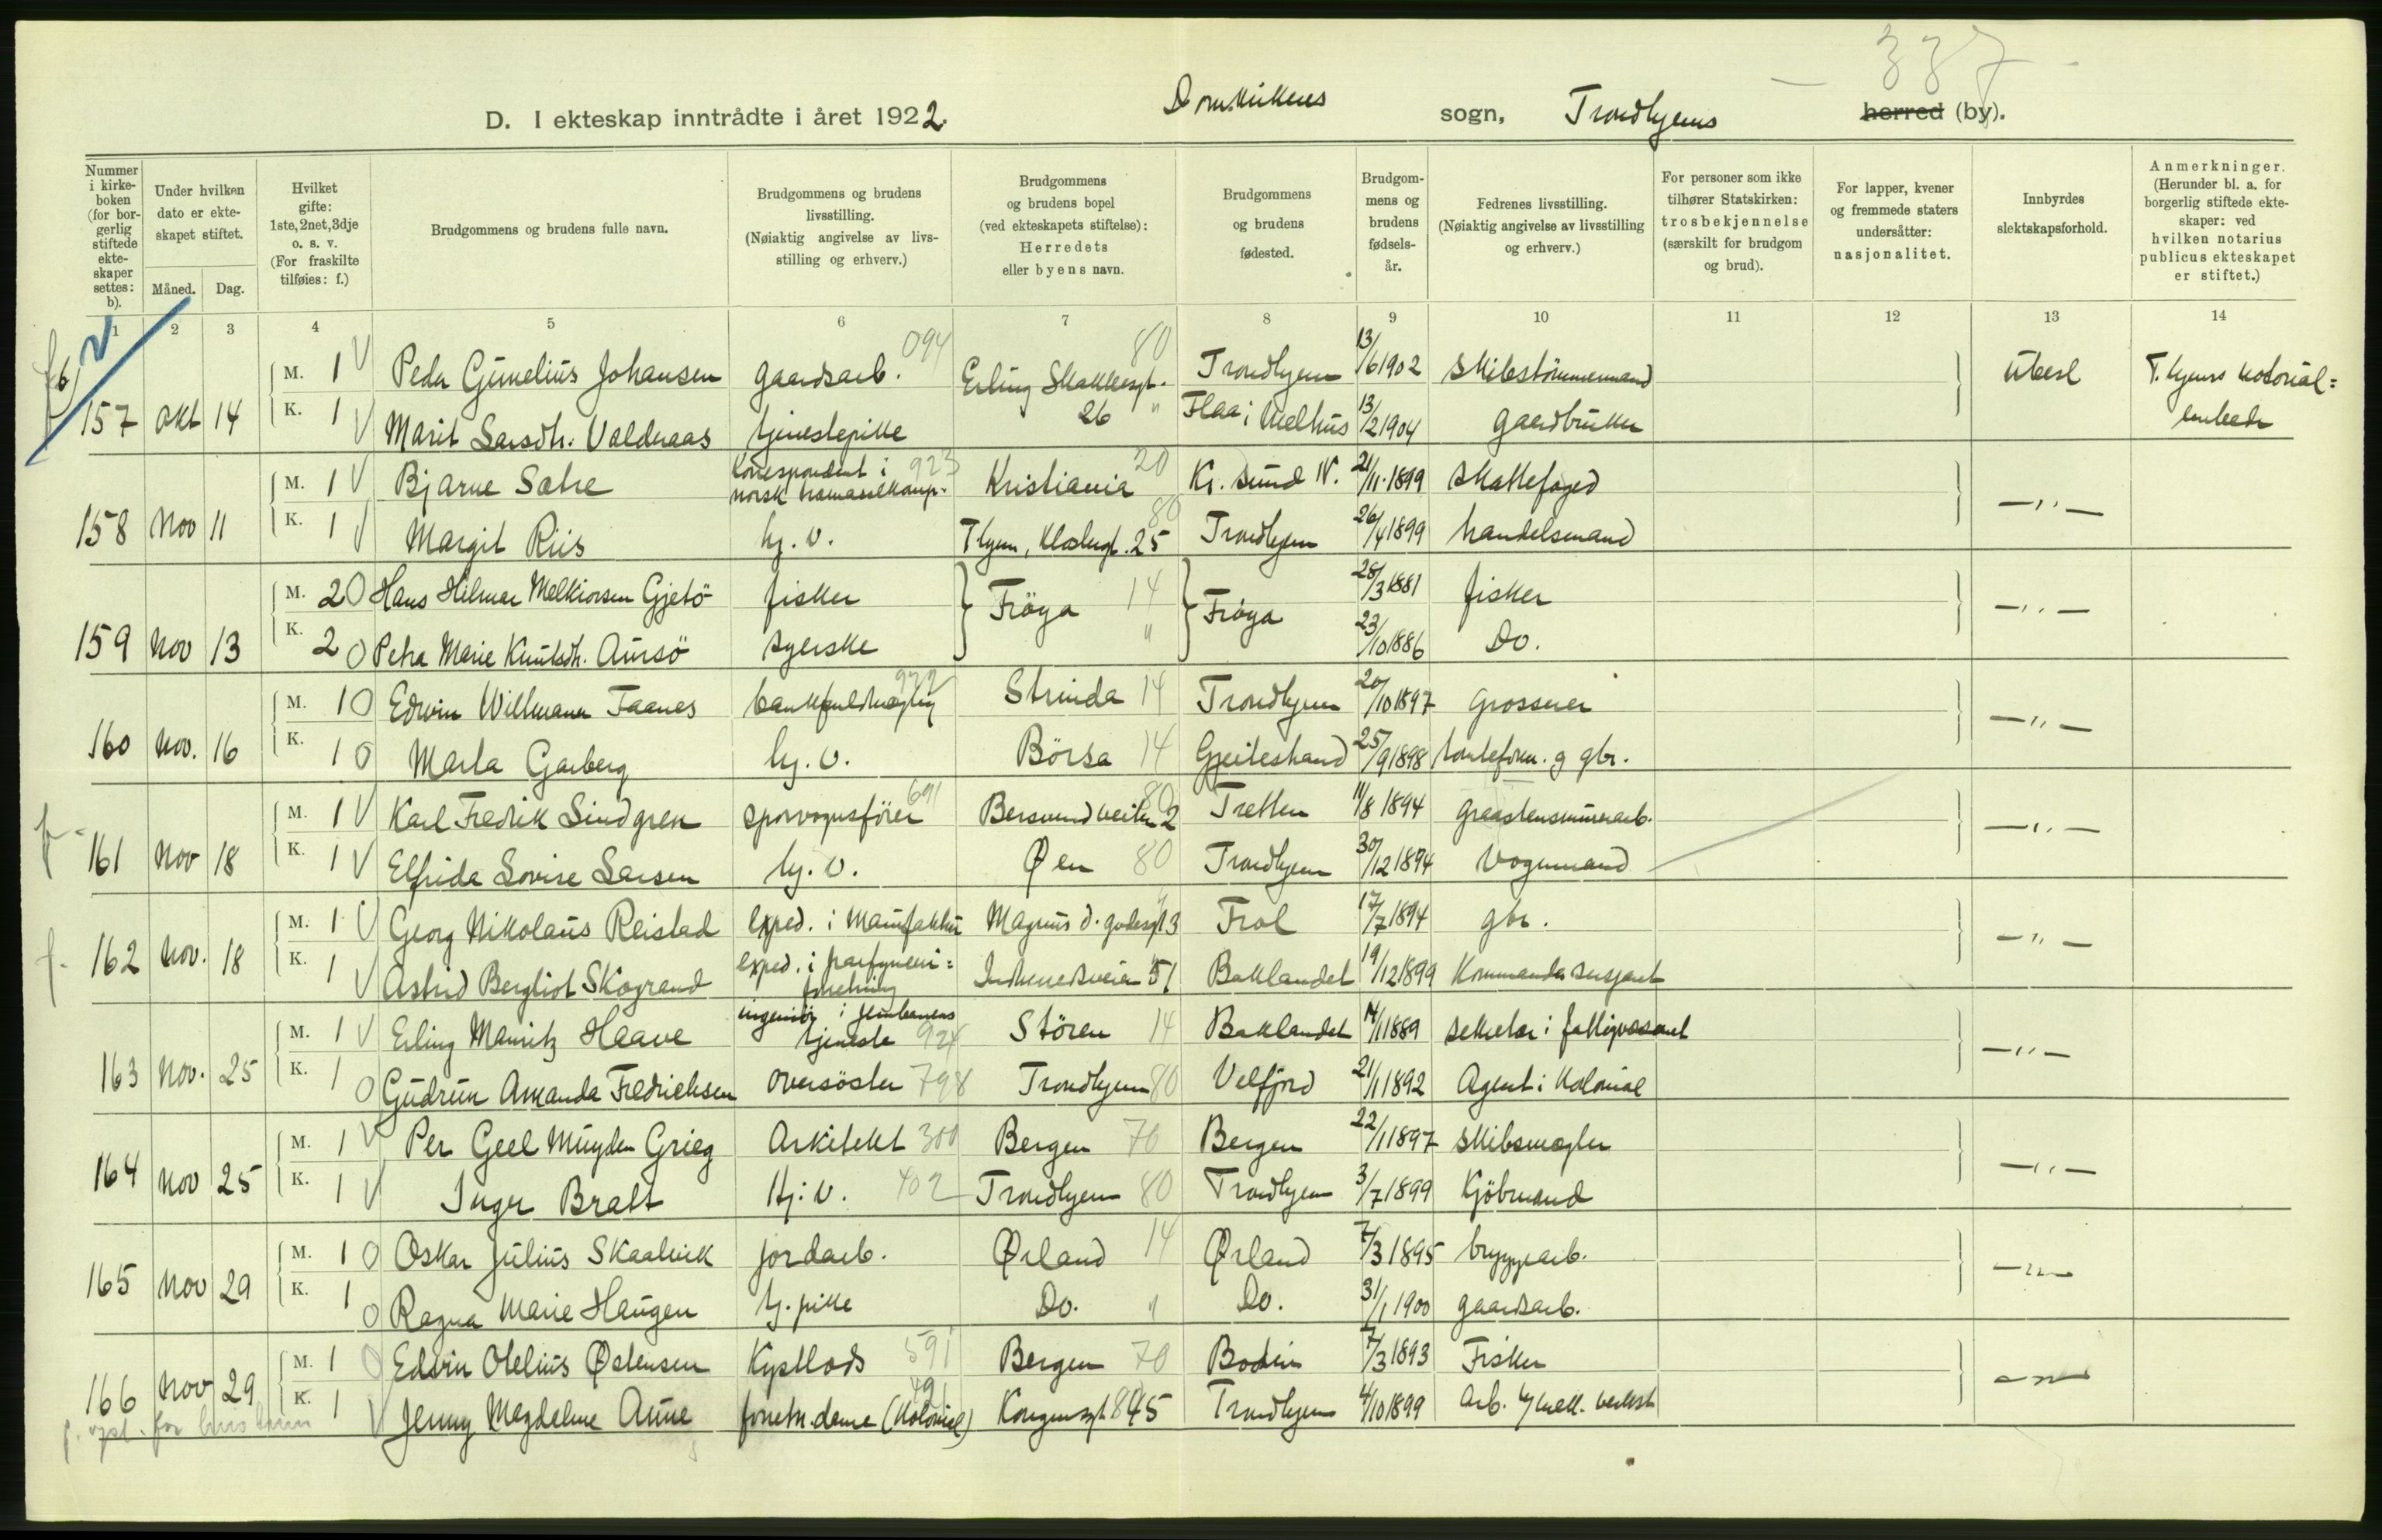 337
D. I ekteskap inntrådte i året 1922. Domkirkens sogn, Trondhjems herred (by).
Nummer i kirkeboken (for borgerlig stiftede ekteskaper settes: b).
Under hvilken dato er ekteskapet stiftet.
Måned. Dag.
Hvilket gifte: 1ste, 2net, 3dje o. s. v. (For fraskilte tilføies: f.)
Brudgommens og brudens fulle navn.
Brudgommens og brudens livsstilling. (Nøiaktig angivelse av livsstilling og erhverv.)
Brudgommens og brudens bopel (ved ekteskapets stiftelse): Herredets eller byens navn.
Brudgommens og brudens fødested.
Brudgommens og brudens fødselsår.
Fedrenes livsstilling. (Nøiaktig angivelse av livsstilling og erhverv.)
For personer som ikke tilhører Statskirken: trosbekjennelse (særskilt for brudgom og brud).
For lapper, kvener og fremmede staters undersåtter: nasjonalitet.
Innbyrdes slektskapsforhold.
Anmerkninger. (Herunder bl. a. for borgerlig stiftede ekteskaper: ved hvilken notarius publicus ekteskapet er stiftet.)
1 2 3 4 5 6 7 8 9 10 11 12 13 14
M. 1 Peder Gunelius Johansen gaardsarb. 094 Erling Skakkesgt. 80 Trondhjem 13/6 1902 skibstömmermand ubesl T.hjems notorial=
157 Okt 14 K. 1 Marit Larsdtr. Valdraas tjenestepike 26 " Flaa i Melhus 13/2 1904 gaardbruker embede
M. 1 Bjarne Sætre korrespondent i norsk tramasselkomp. 923 Kristiania 20 Kr. sund N. 21/11 1899 skattefoged
158 Nov 11 K. 1 Margit Riis hj. v. Thjem, Klostergt. 25 80 Trondhjem 26/4 1899 handelsmand —"—
M. 2 0 Hans Hilmar Melkiorsen Gjetö fisker Fröya 14 Fröya 28/3 1881 fisker
159 Nov 13 K. 2 0 Petra Marie Knutsdtr. Aursö syerske " 23/10 1886 Do. —"—
M. 1 0 Edvin Willmann Faanes bankfuldmægtig 922 Strinda 14 Trondhjem 20/10 1897 Grosserer
160 Nov. 16 K. 1 0 Marta Garberg hj. v. Börsa 14 Gjeitestrand 25/9 1898 gbr. —"—
M. 1 Karl Fredrik Lindgren sporvognsförer 691 Bersvendveiten 2 80 Tretten 11/8 1894
161 Nov 18 K. 1 Elfrida Lovise Larsen hj. v. Øen 80 Trondhjem 30/12 1894 Vognmand —"—
M. 1 Georg Nikolaus Reistad exped. i Manufaktur Magnus d. godesgt 3 Frol 17/7 1894 gbr.
162 Nov. 18 K. 1 Astrid Bergliot Skogrand exped. i parfymeri= forretning Innherredsveien 51 Baklandet 19/12 1899 Kommandersergeant —"—
M. 1 Erling Mauritz Haave ingeniör i jernbanens tjeneste 924 Stören 14 Baklandet 14/1 1889 sekretær i fattigvæsenet
163 Nov. 25 K. 1 0 Gudrun Amanda Fredrichsen oversöster 798 Trondhjem 80 Velfjord 21/1 1892 Agent i Kolonial —"—
M. 1 Per Geel Muyden Grieg Arkitekt 300 Bergen 70 Bergen 22/1 1897 skibsmægler
164 Nov 25 K. 1 Inger Bratt Hj. v. 402 Trondhjem 80 Trondhjem 3/7 1899 Kjöbmand —"—
M. 1 0 Oskar Julius Skaalvik jordarb. Ørland 14 Ørland 7/3 1895 bryggearb.
165 Nov 29 K. 1 0 Ragna Marie Haugen tj. pike Do. " Do. 31/1 1900 gaardsarb. —"—
M. 1 0 Edvin Otelius Østensen Kystlods 591 Bergen 70 Bodin 7/3 1893 Fisker
166 Nov 29 K. 1 Jenny Magdalene Aune forretn.dame (Kolonial) Kongensgt 85 Trondhjem 4/10 1899 Arb. v/ mek. verkst —"—